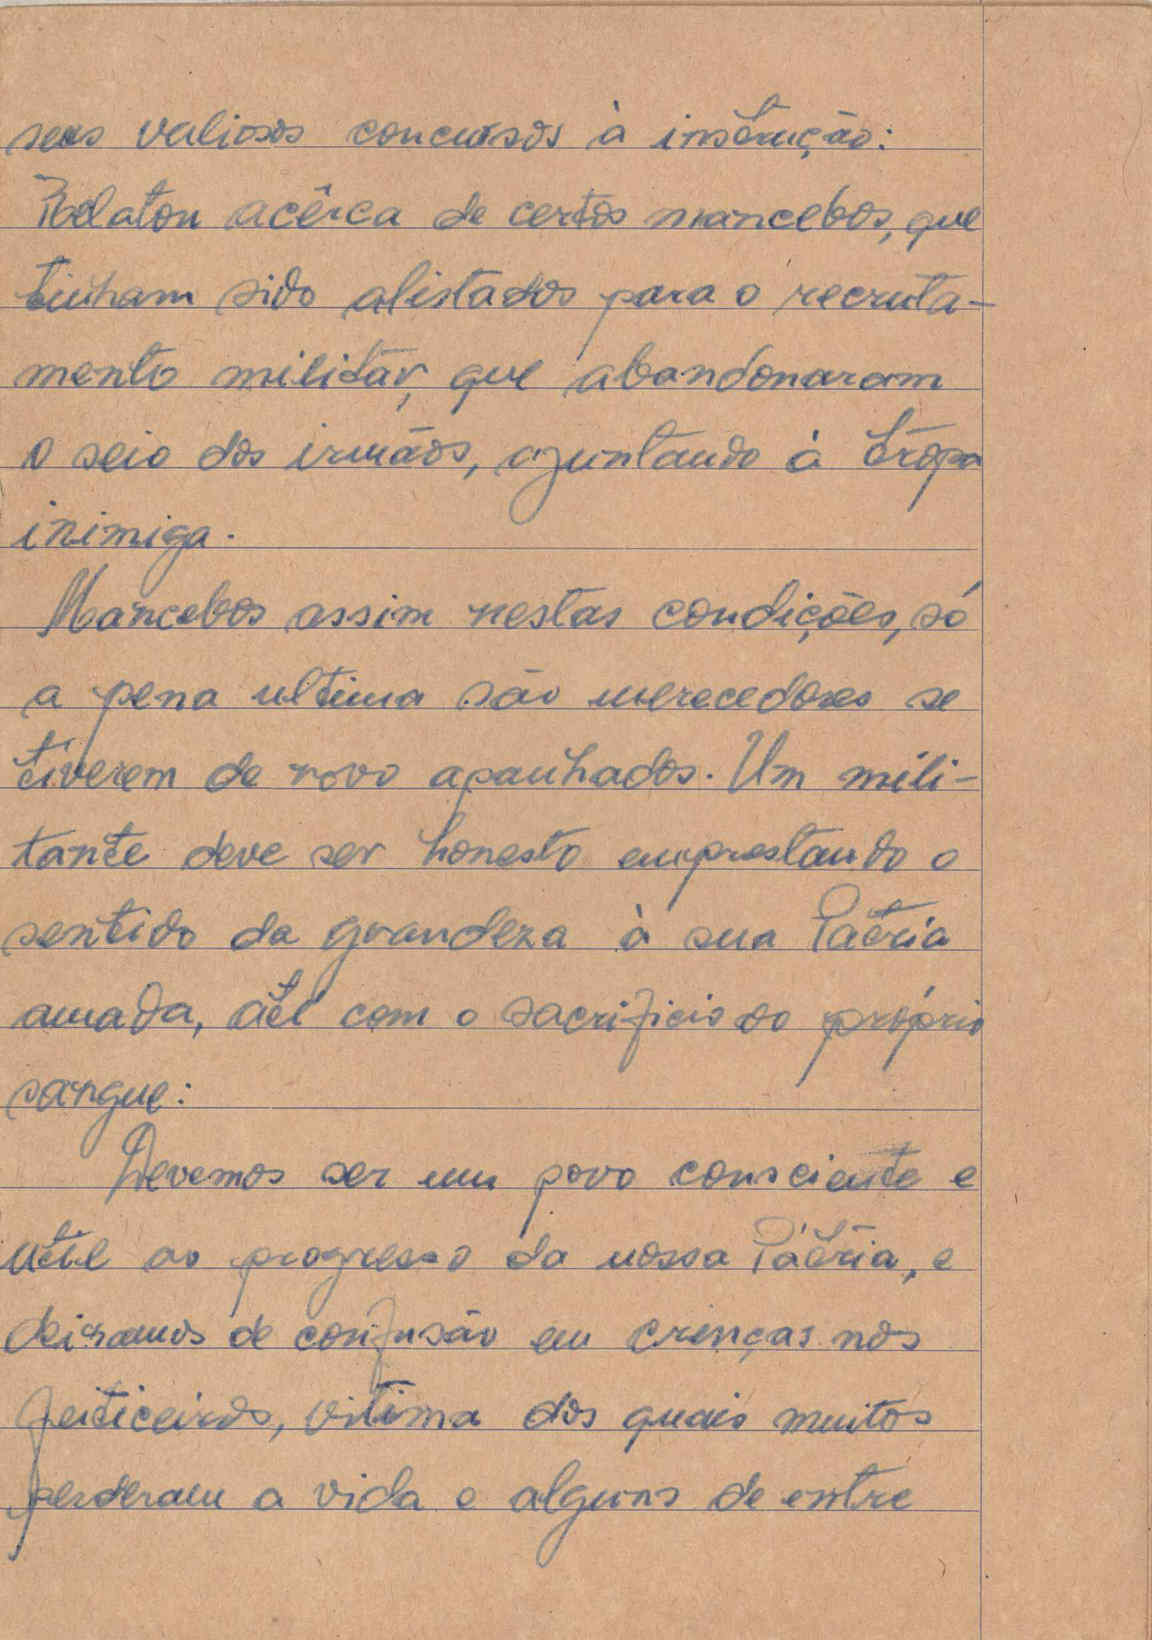 seus valiosos concursos à instrução:
Relatou acêrca de certos mancebos, que
tinham sido alistados para o recruta-
mento militar, que abandonaram
o seio dos irmãos, ajuntando à trópa
inimiga.
Mancebos assim nestas condições, só
a pena ultima são merecedores se
tiverem de novo apanhados. Um mili-
tante deve ser honesto emprestando o
sentido da grandeza à sua Pátria
amada, até com o sacrificio do próprio
sangue:
Devemos ser um povo consciente e
util ao progresso da nossa Pátria, e
deixamos de confusão em crenças nos
feiticeiros, vitima dos quais muitos
perderam a vida e alguns de entre